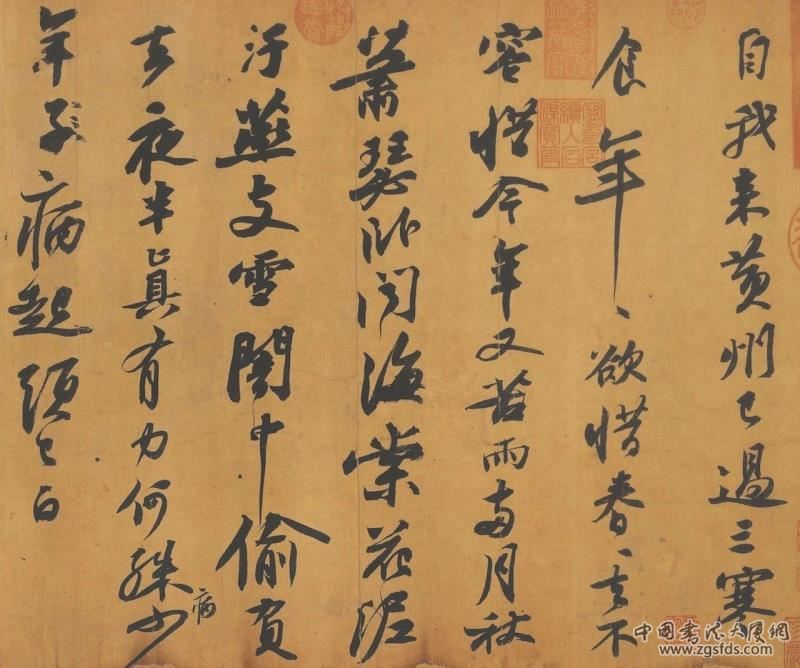 自我来黄州已過三寒
食年〻欲惜春〻去不
容惜今年又苦雨兩月秋
蕭瑟卧聞海棠花泥
汙燕支雪闇中偷負
去夜半真有力何殊病少
年子病起頭已白
中國書法大厦網
www.zgsfds.com